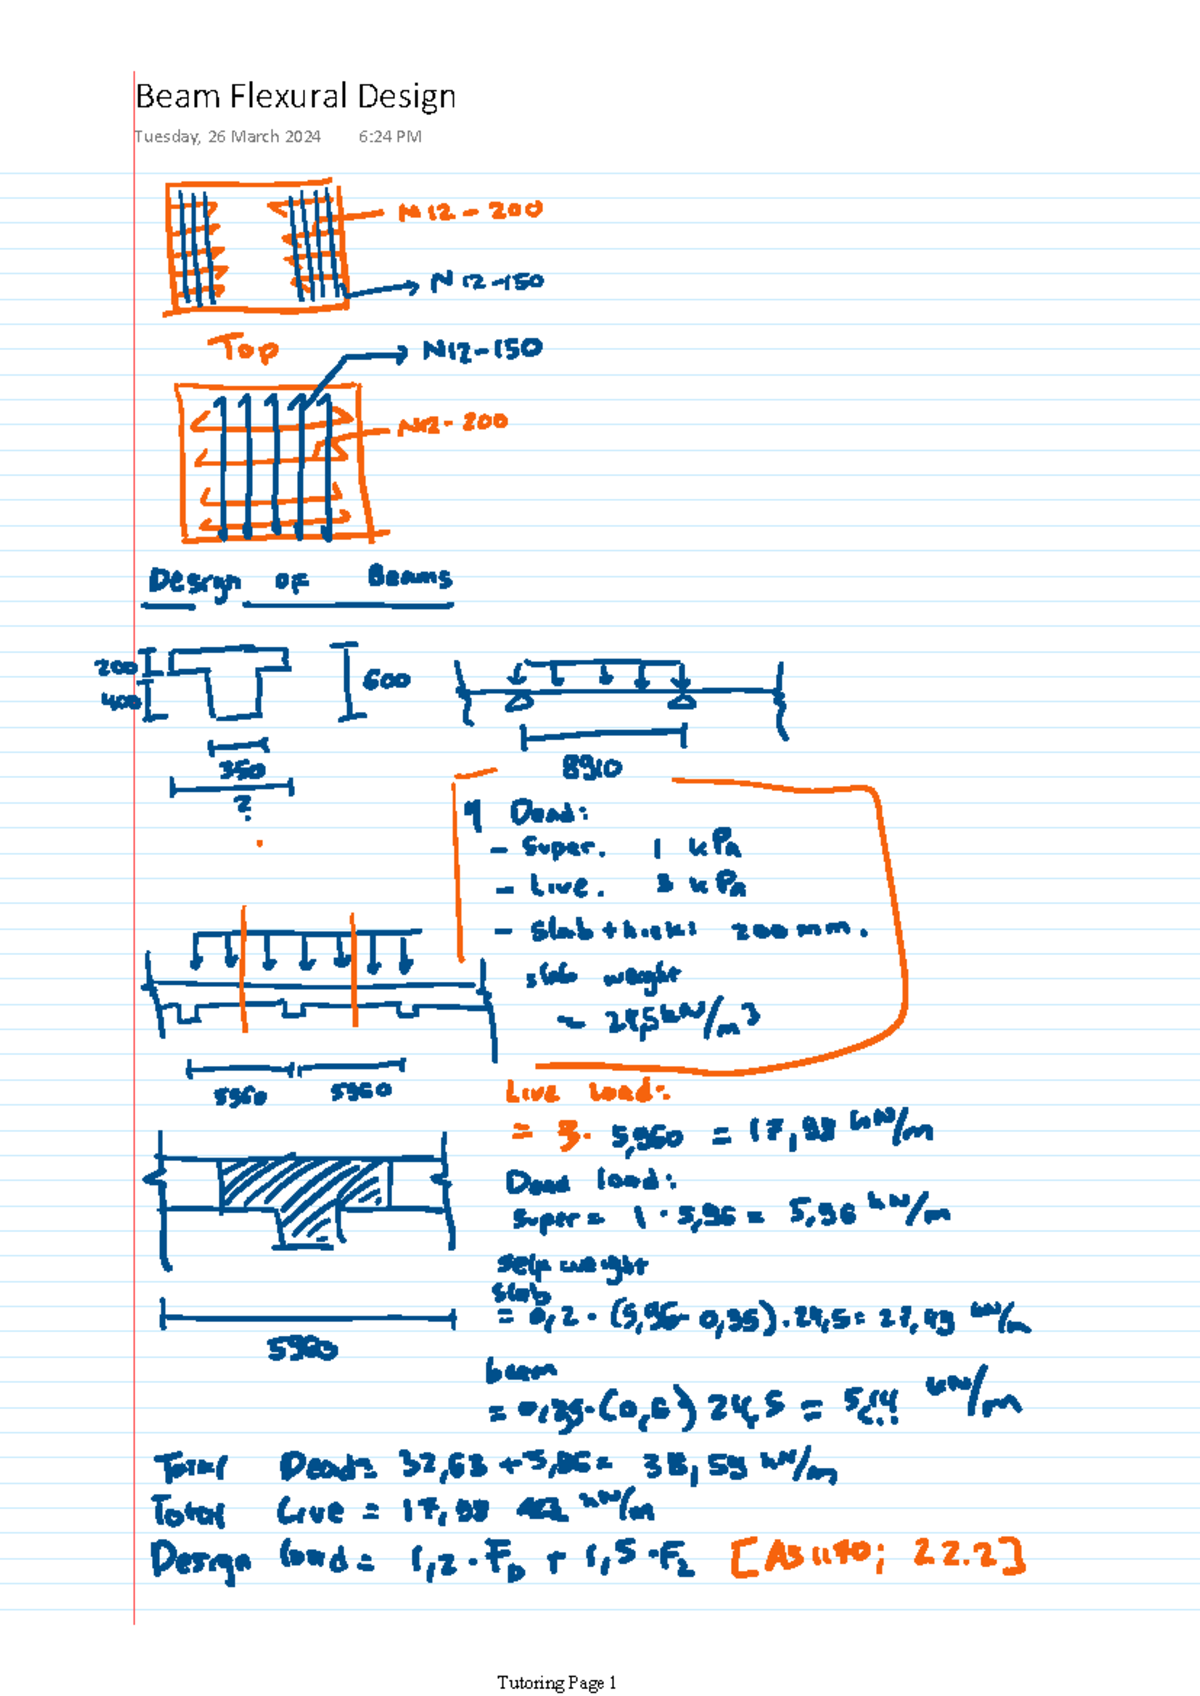 Beam Flexural Design
Tuesday, 26 March 2024 6:24 PM
N12-200
N12-150
Top
N12-150
N12-200
Design of Beams
200
400
600
350
?
8910
Dead:
- Super. 1 kPa
- Live. 3 kPa
- Slab thick: 200mm.
slab weight
= 24,5kN/m3
5960 5960
Live load:
= 3. 5,960 = 17,88 kN/m
Dead load:
Super = 1 . 5,96 = 5,96 kN/m
self weight
slab
= 0,2 . (5,96- 0,35).24,5= 27,49 kN/m
5960
beam
= 0,35.(0,6) 24,5 = 5,14 kN/m
Total Dead= 32,63 +5,96= 38,59 kN/m
Total Live = 17,88 kN/m
Design load = 1,2 . FD + 1,5 .FL [AS1170; 2 2.2]
Tutoring Page 1